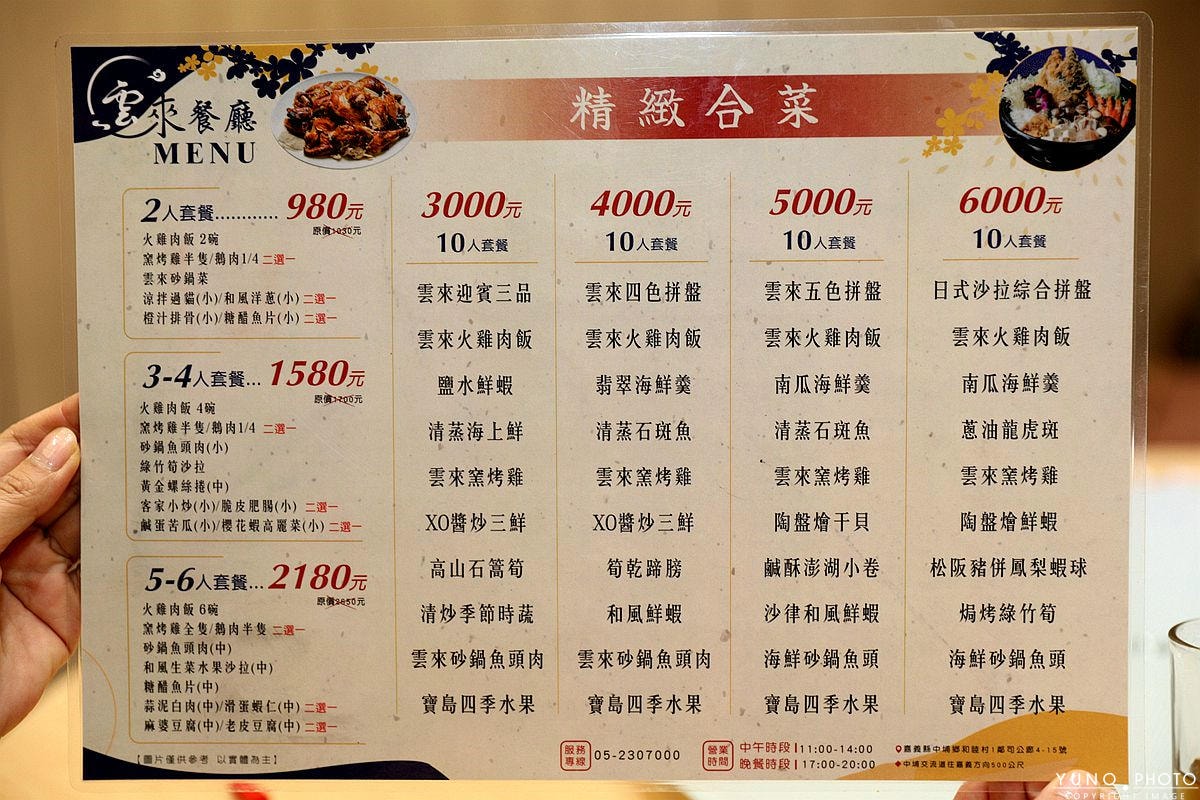 雲來餐廳
MENU
精緻合菜
2人套餐............ 980元
原價1030元
火雞肉飯 2碗
窯烤雞半隻/鵝肉1/4 二選一
雲來砂鍋菜
涼拌過貓(小)/和風洋蔥(小) 二選一
橙汁排骨(小)/糖醋魚片(小) 二選一
3-4人套餐... 1580元
原價1700元
火雞肉飯 4碗
窯烤雞半隻/鵝肉1/4 二選一
砂鍋魚頭肉(小)
綠竹筍沙拉
黃金螺絲捲(中)
客家小炒(小)/脆皮肥腸(小) 二選一
鹹蛋苦瓜(小)/櫻花蝦高麗菜(小) 二選一
5-6人套餐... 2180元
原價2550元
火雞肉飯 6碗
窯烤雞全隻/鵝肉半隻 二選一
砂鍋魚頭肉(中)
和風生菜水果沙拉(中)
糖醋魚片(中)
蒜泥白肉(中)/滑蛋蝦仁(中) 二選一
麻婆豆腐(中)/老皮豆腐(中) 二選一
【圖片僅供參考 以實體為主】
3000元
10人套餐
雲來迎賓三品
雲來火雞肉飯
鹽水鮮蝦
清蒸海上鮮
雲來窯烤雞
XO醬炒三鮮
高山石蒿筍
清炒季節時蔬
雲來砂鍋魚頭肉
寶島四季水果
4000元
10人套餐
雲來四色拼盤
雲來火雞肉飯
翡翠海鮮羹
清蒸石斑魚
雲來窯烤雞
XO醬炒三鮮
筍乾蹄膀
和風鮮蝦
雲來砂鍋魚頭肉
寶島四季水果
5000元
10人套餐
雲來五色拼盤
雲來火雞肉飯
南瓜海鮮羹
清蒸石斑魚
雲來窯烤雞
陶盤燴干貝
鹹酥澎湖小卷
沙律和風鮮蝦
海鮮砂鍋魚頭
寶島四季水果
6000元
10人套餐
日式沙拉綜合拼盤
雲來火雞肉飯
南瓜海鮮羹
蔥油龍虎斑
雲來窯烤雞
陶盤燴鮮蝦
松阪豬併鳳梨蝦球
焗烤綠竹筍
海鮮砂鍋魚頭
寶島四季水果
服務專線 05-2307000
營業時間 中午時段 11:00-14:00
晚餐時段 17:00-20:00
嘉義縣中埔鄉和睦村1鄰司公廍4-15號
中埔交流道往嘉義方向500公尺
YUNO PHOTO
COPYRIGHT IMAGE